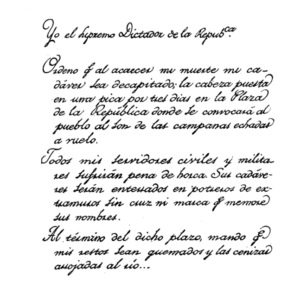 Yo el Supremo Dictador de la Repubca
Ordeno q al acaecer mi muerte mi ca-
dáver sea decapitado; la cabeza puesta
en una pica por tres días en la Plaza
de la República donde se convocará al
pueblo al son de las campanas echadas
a vuelo.
Todos mis servidores civiles y milita-
res sufrirán pena de horca. Sus cadáve-
res serán enterrados en potreros de ex-
tramuros sin cruz ni marca q memore
sus nombres.
Al término del dicho plazo, mando q
mis restos sean quemados y las cenizas
arrojadas al río...